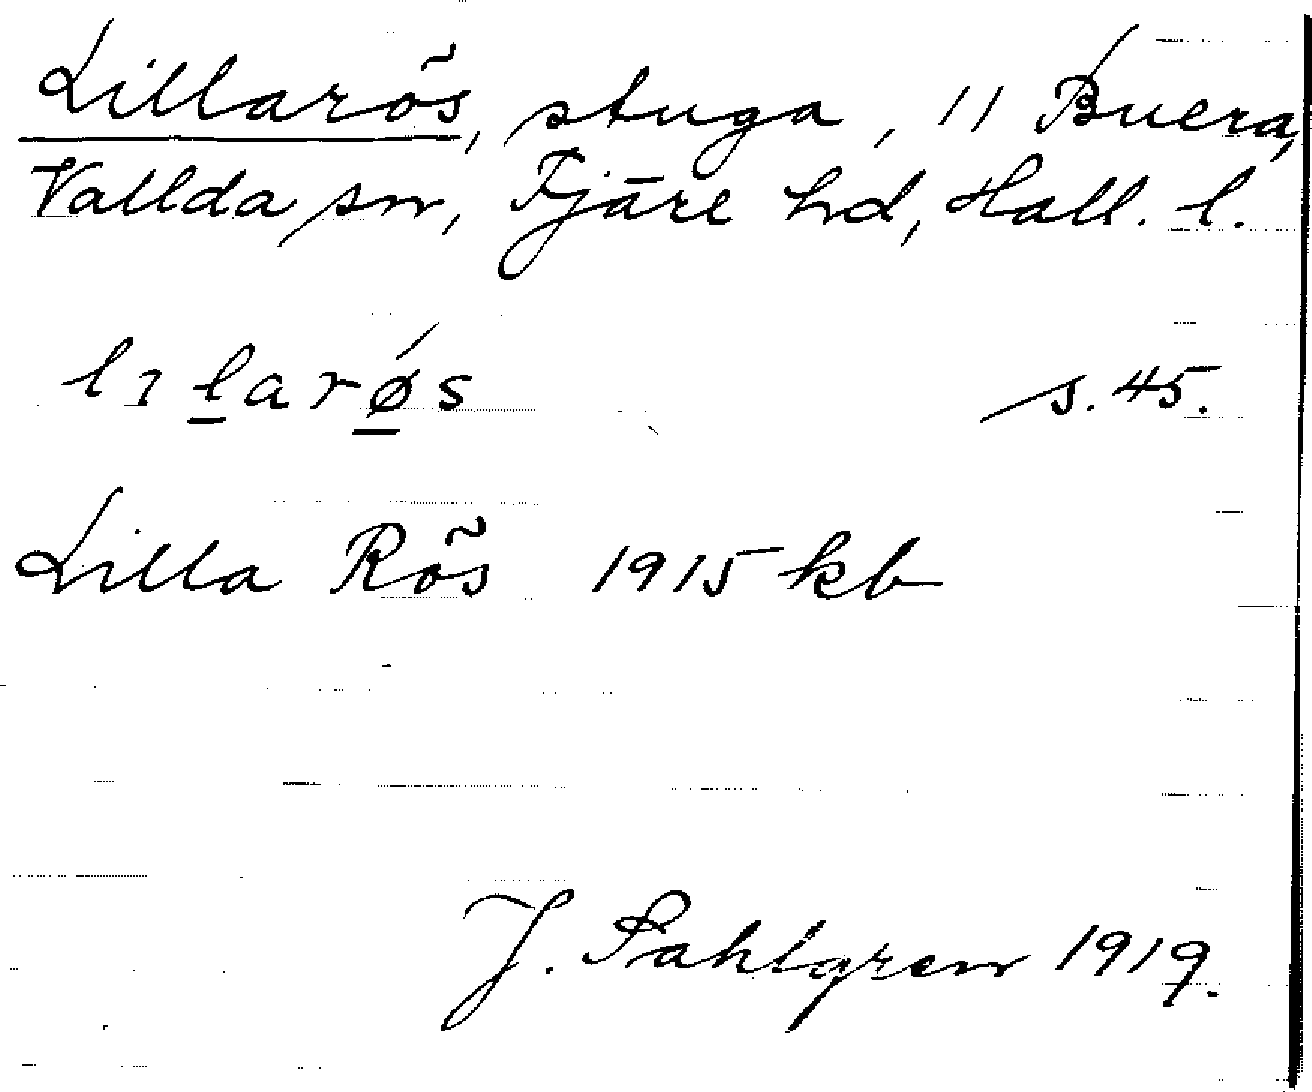 Lillarös, stuga, 11 Buera,
Vallda sn, Fjäre hd, Hall. l.
lılarøs s. 45.
Lilla Rös 1915 kb
J. Sahlgren 1919.